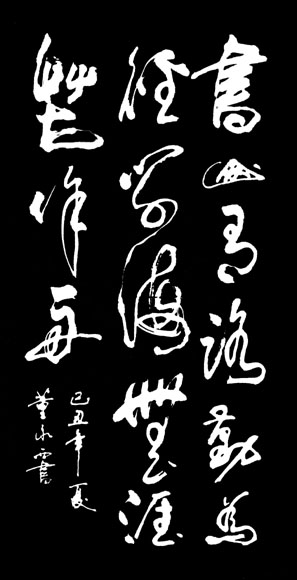 書山有路勤為
徑學海無涯
苦作舟
己丑年夏
董永書